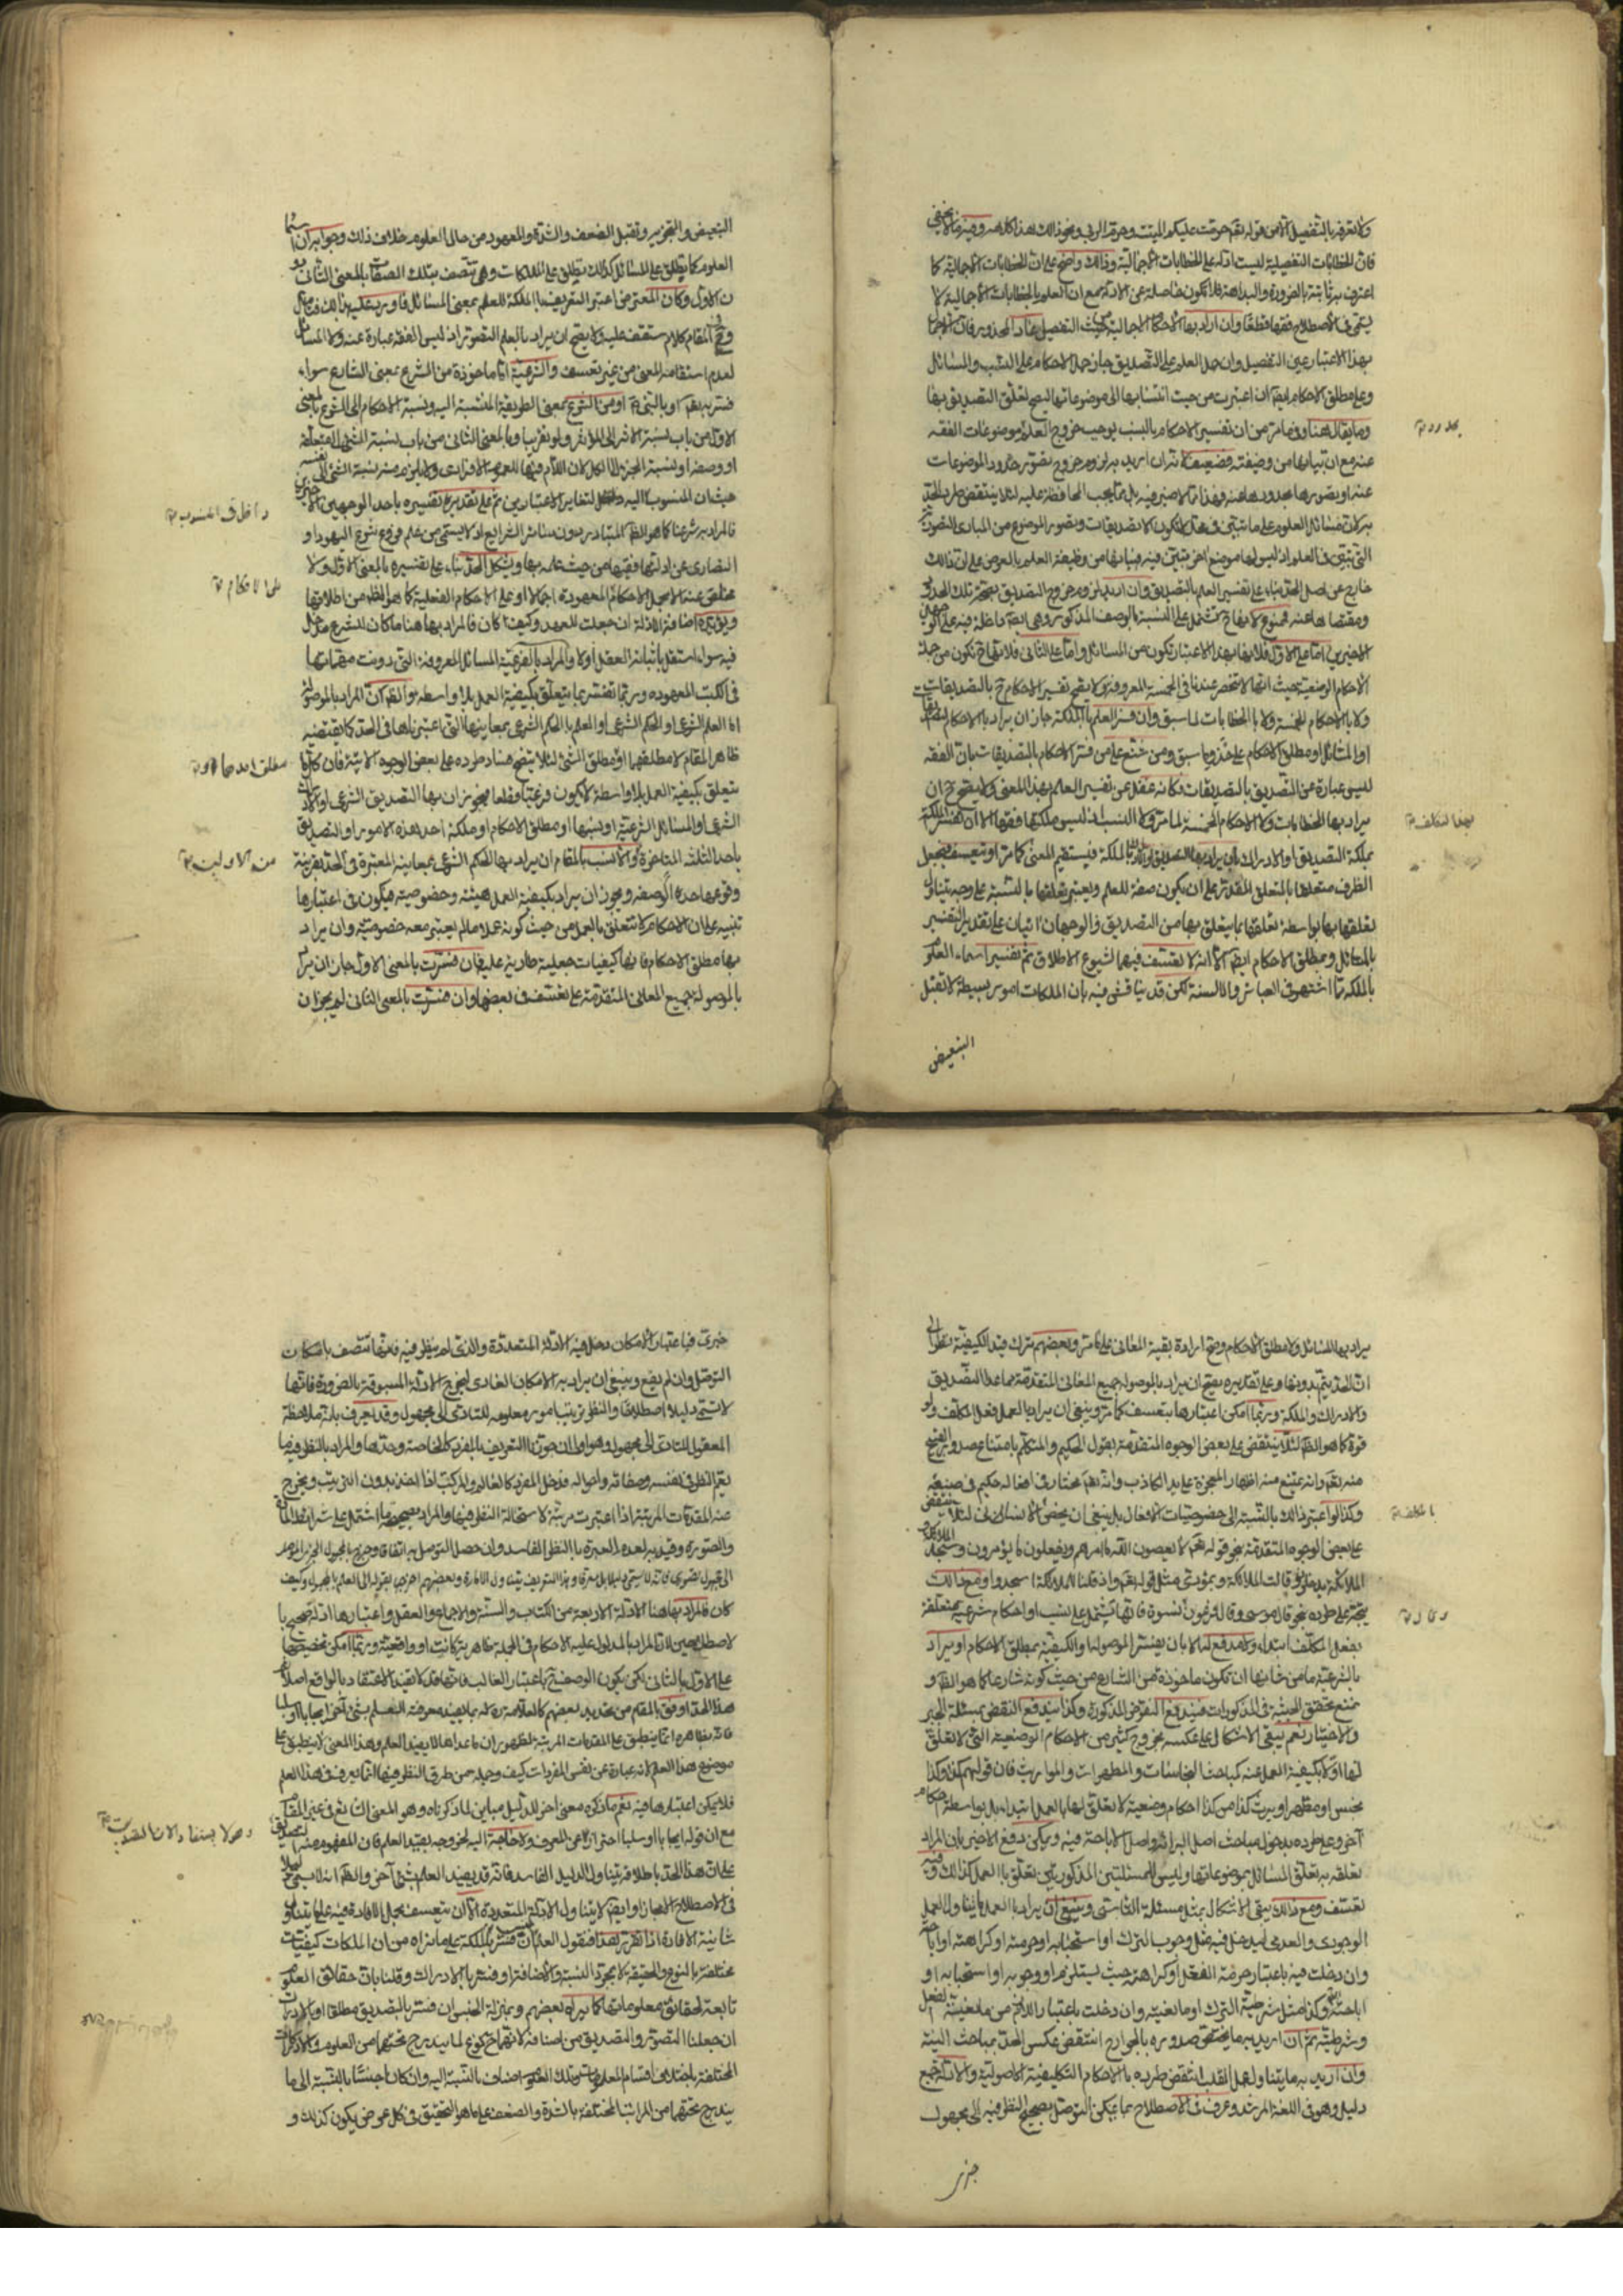 ولا تعرفه بالتفصيل الا من قوله تعم حرمت عليكم الميتة وحرم الربو ونحو ذلك هذا كلامه وفيه ما لا يخفى
فان الخطابات التفصيلية ليست ادلة على الخطابات الاجمالية وذلك واضح على ان الخطابات الاجمالية كما
اعترف به ثابتة بالضرورة والبداهة فلا تكون حاصلة عن الادلة مع ان العلم بالخطابات الاجمالية لا
يسمى في الاصطلاح فقها قطعا وان اراد بها الاحكام الاجمالية من حيث التفصيل عاد المحذور فان الاجمال
بهذا الاعتبار عين التفصيل وان حمل العلم على التصديق جاز حمل الاحكام على النسب والمسائل
وعلى مطلق الاحكام ايضا ان اعتبرت من حيث انتسابها الى موضوعاتها ليصح تعلق التصديق بها
وما يقال هنا وفيما مر من ان تفسير الاحكام بالنسب يوجب خروج العلم بموضوعات الفقه
عنه مع ان بيانها من وظيفته فضعيف لانه ان اريد به لزوم خروج تصور حدود الموضوعات
عنه او تصورها بحدودها عنه فهذا مما لا ضير فيه بل مما يجب المحافظة عليه لئلا ينتقض طرد الحد
به لان مسائل العلوم على ما تبين في محله لا تكون الا تصديقات وتصور الموضوع من المبادي التصورية
التي تبين في العلم اذ ليس لها موضع اخر تبين فيه فبيانها من وظيفة العلم بالعرض على ان ذلك
خارج عن اصل الحد بناء على تفسير العلم بالتصديق وان اريد لزوم خروج التصديق بصحة تلك الحدود
ومقتضاها عنه فممنوع لانها ح تشتمل على النسبة بالوصف المذكور وهي ايضا داخلة فيه على الوجهين
الاخيرين اما على الاول فلانها بهذا الاعتبار تكون من المسائل واما على الثاني فلانها ح تكون من جملة
الاحكام الوضعية حيث انها لا تنحصر عندنا في الخمسة المعروفة ولا يصح تفسير الاحكام ح بالتصديقات
ولا بالاحكام الخمسة ولا بالخطابات لما سبق وان فسر العلم بالملكة جاز ان يراد بالاحكام التصديقات
او المسائل او مطلق الاحكام على حذو ما سبق ومن شنع على من فسر الاحكام بالتصديقات بان الفقه
ليس عبارة عن التصديق بالتصديقات فكانه غفل عن تفسير العلم بهذا المعنى ولا يصح ح ان
يراد بها الخطابات ولا الاحكام الخمسة لما مر ولا النسب اذ ليس ملكتها فقها الا ان تفسر الملكة
بملكة التصديق او الادراك فيستقيم المعنى كما مر او يتعسف بجعل
الظرف متعلقا بالمتعلق المقدر على ان يكون صفة للعلم ويعتبر تعلقها بالنسبة على وجه يتناول
تعلقها بها بواسطة تعلقها بما يتعلق بها من التصديق فالوجهان اتيان على تقدير التفسير
بالمسائل ومطلق الاحكام ايضا الا انه لا تعسف فيهما لشيوع الاطلاق ثم تفسير اسماء العلوم
بالملكة مما اشتهر في العبائر والالسنة لكن قد يناقش فيه بان الملكات امور بسيطة لا تقبل
التبعيض
بحدوده
بهذا المتعلق
التبعيض والتجزي وتقبل الضعف والشدة والمعهود من حال العلوم خلاف ذلك وجوابه ان اسماء
العلوم كما يطلق على المسائل كذلك يطلق على الملكات وهي تتصف بتلك الصفات بالمعنى الثاني دو
ن الاول وكان المعترض اعتبر التعريف بالملكة للعلم بمعنى المسائل فاورد عليه ذلك فتامل
وفي المقام كلام ستقف عليه ولا يصح ان يراد بالعلم التصور اذ ليس الفقه عبارة عنه ولا المسائل
لعدم استقامة المعنى من غير تعسف والشرعية اما ماخوذة من الشرع بمعنى الشارع سواء
فسر به تعم او بالنبي او من الشرع بمعنى الطريقة المنتسبة اليه ونسبة الاحكام الى الشرع بالمعنى
الاول من باب نسبة الاثر الى المؤثر ولو تقريبا وبالمعنى الثاني من باب نسبة الشيء الى متعلقه
او وصفه او نسبة الجزء الى الكل لان اللام فيها للعموم الافرادي ولا يلزم منه نسبة الشيء الى نفسه
حيث ان المنسوب اليه لتغاير الاعتبارين ثم على تقدير تفسيره باحد الوجهين الاخيرين
فالمراد به شرعنا كما هو الظاهر المتبادر دون سائر الشرائع اذ لا يسمى من علم فروع شرع اليهود او
النصارى عن ادلتها فقيها من حيث علمه بها ويشكل الحد بناء على تفسيره بالمعنى الاول ولا
مخلص عنه الا بحمل الاحكام المعهودة اجمالا او على الاحكام الفعلية كما هو الظاهر من اطلاقها
ويؤيده اضافة الادلة ان جعلت للعهد وكيف كان فالمراد بها هنا ما كان للشرع مدخل
فيه سواء استقل باثباته العقل اولا والمراد بالفرعية المسائل المعروفة التي دونت مهماتها
في الكتب المعهودة وربما تفسر بما يتعلق بكيفية العمل بلا واسطة والظاهر ان المراد بالموصولة
اما العلم الشرعي او الحكم الشرعي او العلم بالحكم الشرعي بمعانيها التي اعتبرناها في الحد كما يقتضيه
ظاهر المقام لا مطلقهما او مطلق الشيء لئلا يتضح فساد طرده على بعض الوجوه الاتية فان كل ما
يتعلق بكيفية العمل بلا واسطة لا يكون فرعيا وقطعا فيجوز ان يراد بها التصديق الشرعي او الادراك
الشرعي او المسائل الشرعية او نسبها او مطلق الاحكام او ملكة احد هذه الامور او التصديق
باحد الثلثة المتاخرة والانسب بالمقام ان يراد بها الحكم الشرعي بمعانيه المعتبرة في الحد بقرينة
وقوعها حدا لوصفه ويجوز ان يراد بكيفية العمل هيئته وخصوصيته فيكون في اعتبارها
تنبيه على ان الاحكام لا تتعلق بالعمل من حيث كونه عملا ما لم يعتبر معه خصوصية وان يراد
بها مطلق الاحكام فانها كيفيات جعلية طارية عليه فان فسرت بالمعنى الاول جاز ان يراد
بالموصولة جميع المعاني المتقدمة على تعسف في بعضها وان فسرت بالمعنى الثاني لم يجز ان
داخل في المنسوب
على الاحكام
مطلق احدهما
من الاولين
يراد بها المسائل ولا مطلق الاحكام وصح ارادة بقية المعاني على ما مر وبعضهم ترك قيد الكيفية نظرا الى
ان الحد يتم بدونها وعلى تقديره يصح ان يراد بالموصولة جميع المعاني المتقدمة ما عدا التصديق
والادراك والملكة وربما امكن اعتبارها بتعسف كما مر وينبغي ان يراد بالعمل فعل المكلف ولو
قوة كما هو الظاهر لئلا ينتقض على بعض الوجوه المتقدمة بقول الحكيم والمتكلم بامتناع صدور القبيح
منه تعم وانه يمتنع منه اظهار المعجزة على يد الكاذب وانه تعم مختار في افعاله حكيم في صنيعه
وكذا لو اعتبر ذلك بالنسبة الى خصوصيات الافعال بل ينبغي ان يخص الانسان لئلا ينتقض
على بعض الوجوه المتقدمة بنحو قوله تعم لا يعصون الله ما امرهم ويفعلون ما يؤمرون وسجد الملائكة
الملائكة قالت الملائكة وبمؤدى مثل قوله تعم واذ قلنا للملائكة اسجدوا ومع ذلك
يتجه على طرده نحو قال موسى وقال فرعون نسوة فانها تشتمل على نسب او احكام شرعية متعلقة
بفعل المكلف ابتداء ولا مدفع لها الا بان يفسر الموصولة والكيفية بمطلق الاحكام او يراد
بالشرعية ما من شانها ان تكون ماخوذة من الشارع من حيث كونه شارعا كما هو الظاهر و
يمنع تحقق الحيثية في المذكورات فيندفع النقوض المذكورة وكذا يندفع النقض بمسئلة الجبر
والاختيار نعم يبقى الاشكال على عكسه بخروج كثير من الاحكام الوضعية التي لا تعلق
لها اولا بكيفية العمل عنه كمباحث النجاسات والمطهرات والمواريث فان قولهم كذا وكذا
نجس او مطهر او يرث كذا من كذا احكام وضعية لا تعلق لها بالعمل ابتداء بل بواسطة احكام
اخر وعلى طرده بدخول مباحث اصل البرائة واصل الاباحة فيه ويمكن دفع الاخير بان المراد
تعلقه به تعلق المسائل بموضوعاتها وليس للمسئلتين المذكورتين تعلق بالعمل كذلك وفيه
تعسف ومع ذلك يبقى الاشكال بمثل مسئلة التاسي وينبغي ان يراد بالعمل ما يتناول العمل
الوجودي والعدمي ليدخل فيه مثل وجوب الترك او استحبابه او حرمته او كراهته او اباحته
وان دخلت فيه باعتبار حرمة الفعل او كراهته حيث يستلزم او وجوبه او استحبابه او
اباحته وكذا مثل شرطية الترك او مانعيته وان دخلت باعتبار اللازم من مانعية الفعل
وشرطيته ثم ان اريد به ما يختص صدوره بالجوارح انتقض عكس الحد بمباحث النية
وان اريد به ما يتناول عمل القلب انتقض طرده بالاحكام التكليفية الاصولية والادلة جمع
دليل وهو في اللغة المرشد وعرف في الاصطلاح بما يمكن التوصل بصحيح النظر فيه الى مجهول
خبري
خبري فباعتبار الامكان دخل فيه الادلة المتعددة والذي لم ينظر فيه فانها تتصف بامكان
التوصل وان لم يقع وينبغي ان يراد به الامكان العادي ليخرج الادلة المسبوقة بالضرورة فانها
لا تسمى دليلا اصطلاحا والنظر ترتيب امور معلومة للتادي الى مجهول وقد يعرف بانه ملاحظة
المعقول للتادي الى مجهول وهو اولى ان جوزنا التعريف بالمفرد كالخاصة وحدها والمراد بالنظر فيه ما
يعم النظر في نفسه وصفاته واحواله فدخل المفرد كالعالم والمركب اذا اخذ بدون الترتيب ويخرج
عنه المقدمات المرتبة اذا اعتبرت مرتبة لاستحالة النظر فيها والمراد بصحيحه ما اشتمل على شرائط المادة
والصورة وقيد به لعدم العبرة بالنظر الفاسد وان حصل التوصل به اتفاقا وخرج بالمجهول الخبري الموصل
كان فالمراد بها هنا الادلة الاربعة من الكتاب والسنة والاجماع والعقل واعتبارها ادلة صحيح با
لاصطلاحين لان المراد بالمدلول عليه الاحكام في الجملة ظاهرية كانت او واقعية وربما امكن تخصيصها
على الاول بالثاني لكن يكون الوصف ح باعتبار الغالب فانها قد لا تفيد الاعتقاد بالواقع اصلا ثم
هذا الحد اوفق بالمقام من تحديد بعضهم كالعلامة ره له بما يفيد معرفته العلم بشيء اخر ايجابا او سلبا
فانه بظاهره انما ينطبق على المقدمات المرتبة لظهور ان ما عداها لا يفيد العلم وهذا المعنى لا ينطبق على
موضوع هذا العلم لانه عبارة عن نفس المفردات كيف وجملة من طرق النظر فيها انما يعرف في هذا العلم
فلا يمكن اعتبارها فيه نعم ما ذكره معنى اخر للدليل مباين لما ذكرناه وهو المعنى الشائع في غير المقام
مع ان قوله ايجابا او سلبا احتراز عن المعرف ولا حاجة اليه لخروجه بقيد العلم فان المفهوم منه التصديق
على ان هذا الحد باطلاقه يتناول الدليل الفاسد فانه قد يفيد العلم بشيء اخر والظاهر انه لا يسمى دليلا
في الاصطلاح الا مجازا وايضا لا يتناول الادلة المتعددة الا ان يتعسف بحمل الافادة فيه على ما يتناول
شانية الافادة اذا تقرر هذا فنقول العلم ان فسر بالملكة على ما نراه من ان الملكات كيفيات
مختلفة بالنوع والحقيقة لا بمجرد النسبة والاضافة او فسر بالادراك وقلنا بان حقائق العلوم
تابعة لحقائق معلوماتها كما يراه بعضهم وبمنزلة الجنس ان فسر بالتصديق مطلقا او بالادراك
ان جعلنا التصور والتصديق من اصنافه لانهما ح كنوع لما يندرج تحتهما من العلوم والادراكات
المختلفة باختلاف اقسام المعلومات وتلك العلوم اصناف بالنسبة اليه وان كان جنسا بالنسبة الى ما
يندرج تحتهما من المراتب المختلفة بالشدة والضعف على ما هو التحقيق في كل عرض يكون كذلك و